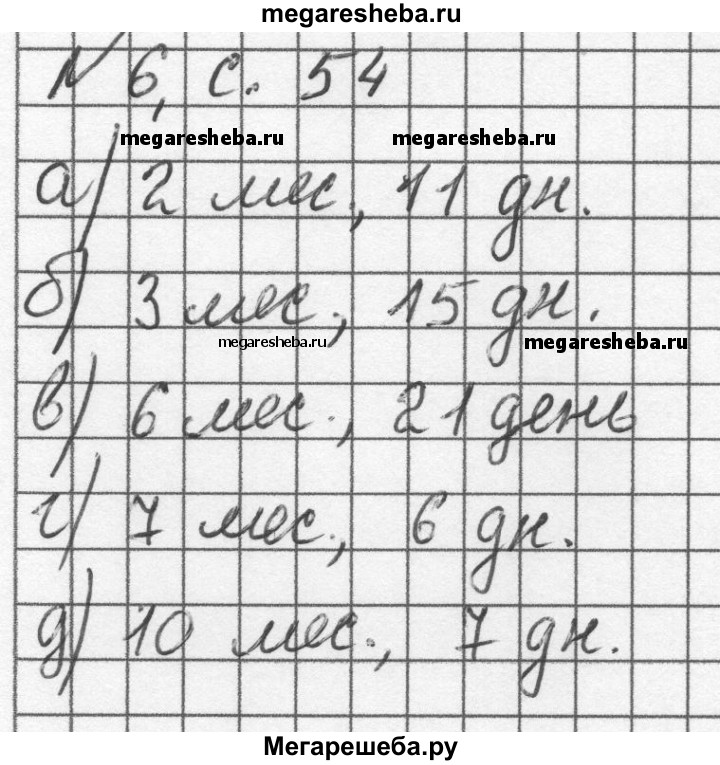 megaresheba.ru
№ 6, с. 54
megaresheba.ru megaresheba.ru
а) 2 мес., 11 дн.
б) 3 мес., 15 дн.
megaresheba.ru megaresheba.ru
в) 6 мес., 21 день
г) 7 мес., 6 дн.
д) 10 мес., 7 дн.
Мегарешеба.ру